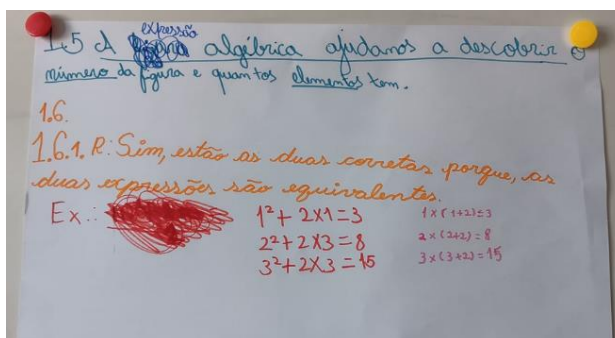 1.5 A expressão algébrica ajudanos a descobrir o
número da figura e quantos elementos tem.
1.6.
1.6.1. R: Sim, estão as duas corretas porque, as
duas expressões são equivalentes.
Ex.: 1² + 2x1 = 3 1 x (1+2) = 3
2² + 2x3 = 8 2 x (2+2) = 8
3² + 2x3 = 15 3 x (3+2) = 15